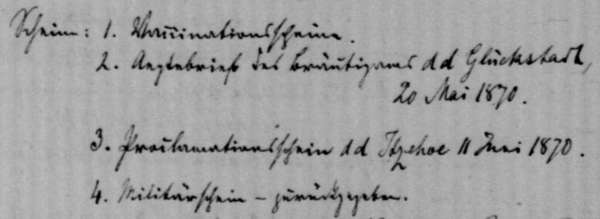 Scheine: 1. Vaccinationsscheine.
2. Angtebrief des Bräutigams dd Glückstadt,
20 Mai 1870.
3. Proclamationsschein dd Itzehoe 11 Juni 1870.
4. Militärschein – zurückgegeben.